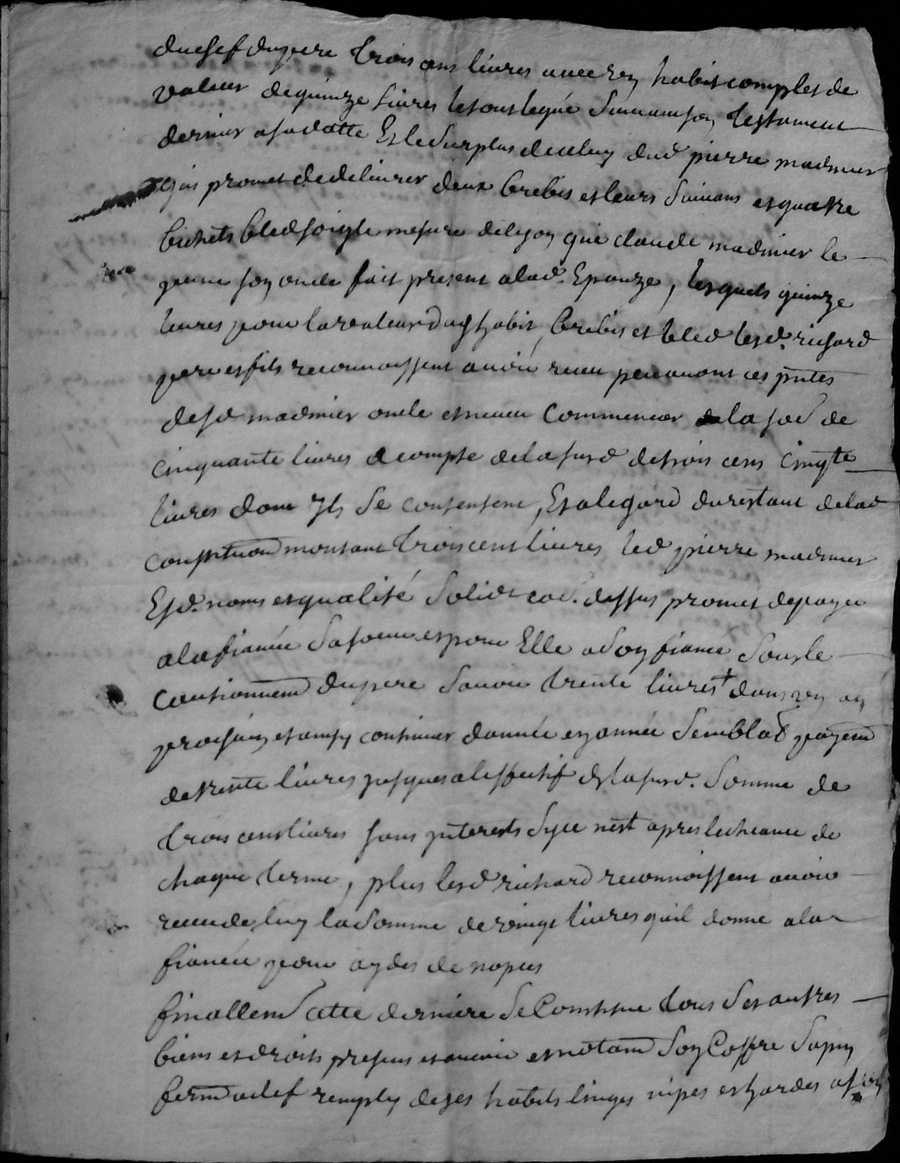 du chef du pere trois cens livres avec un habit complet de
valeur de quinze livres le tout legué suivant son testament
dernier a sa datte Et le surplus de celuy dud pierre madinier
qui promet de delivrer deux brebis et leurs suivans et quatre
bichets bled soigle mesure de lyon que claude madinier le
jeune son oncle fait present a lad. Epouze, lesquels quinze
livres pour la valeur dud habit, brebis et bled lesd. richard
pere et fils reconnoissent avoir receu peravant ces pntes
desd madinier oncle et neveu commencer la so͞e de
cinquante livres a compte de la susd de trois cens cinqte
livres dont Ils se contentent, Et a legard du restant de lad
constitution montant trois cent livres led pierre madinier
Esd. noms et qualité solid. co͞e dessus promet de payer
a la fiancée sa soeur et pour Elle a son fiancé sous le
cautionnem du pere savoir trente livres + dans un an
prochain et ainsy continuer dannée en année semblab payem
de trente livres jusques a leffectif de la susd. somme de
trois cens livres sans interests sy ce nest apres lecheance de
chaque terme, plus lesd richard reconnoissent avoir
receu de luy la somme de vingt livres quil donne a la
fiancée pour aydes de nopces
finallem cette derniere se Constitue tous ses autres
biens et droits presens et avenir et notam son Coffre sapin
ferm a clef remply de ses habits linges nipes et hardes a son